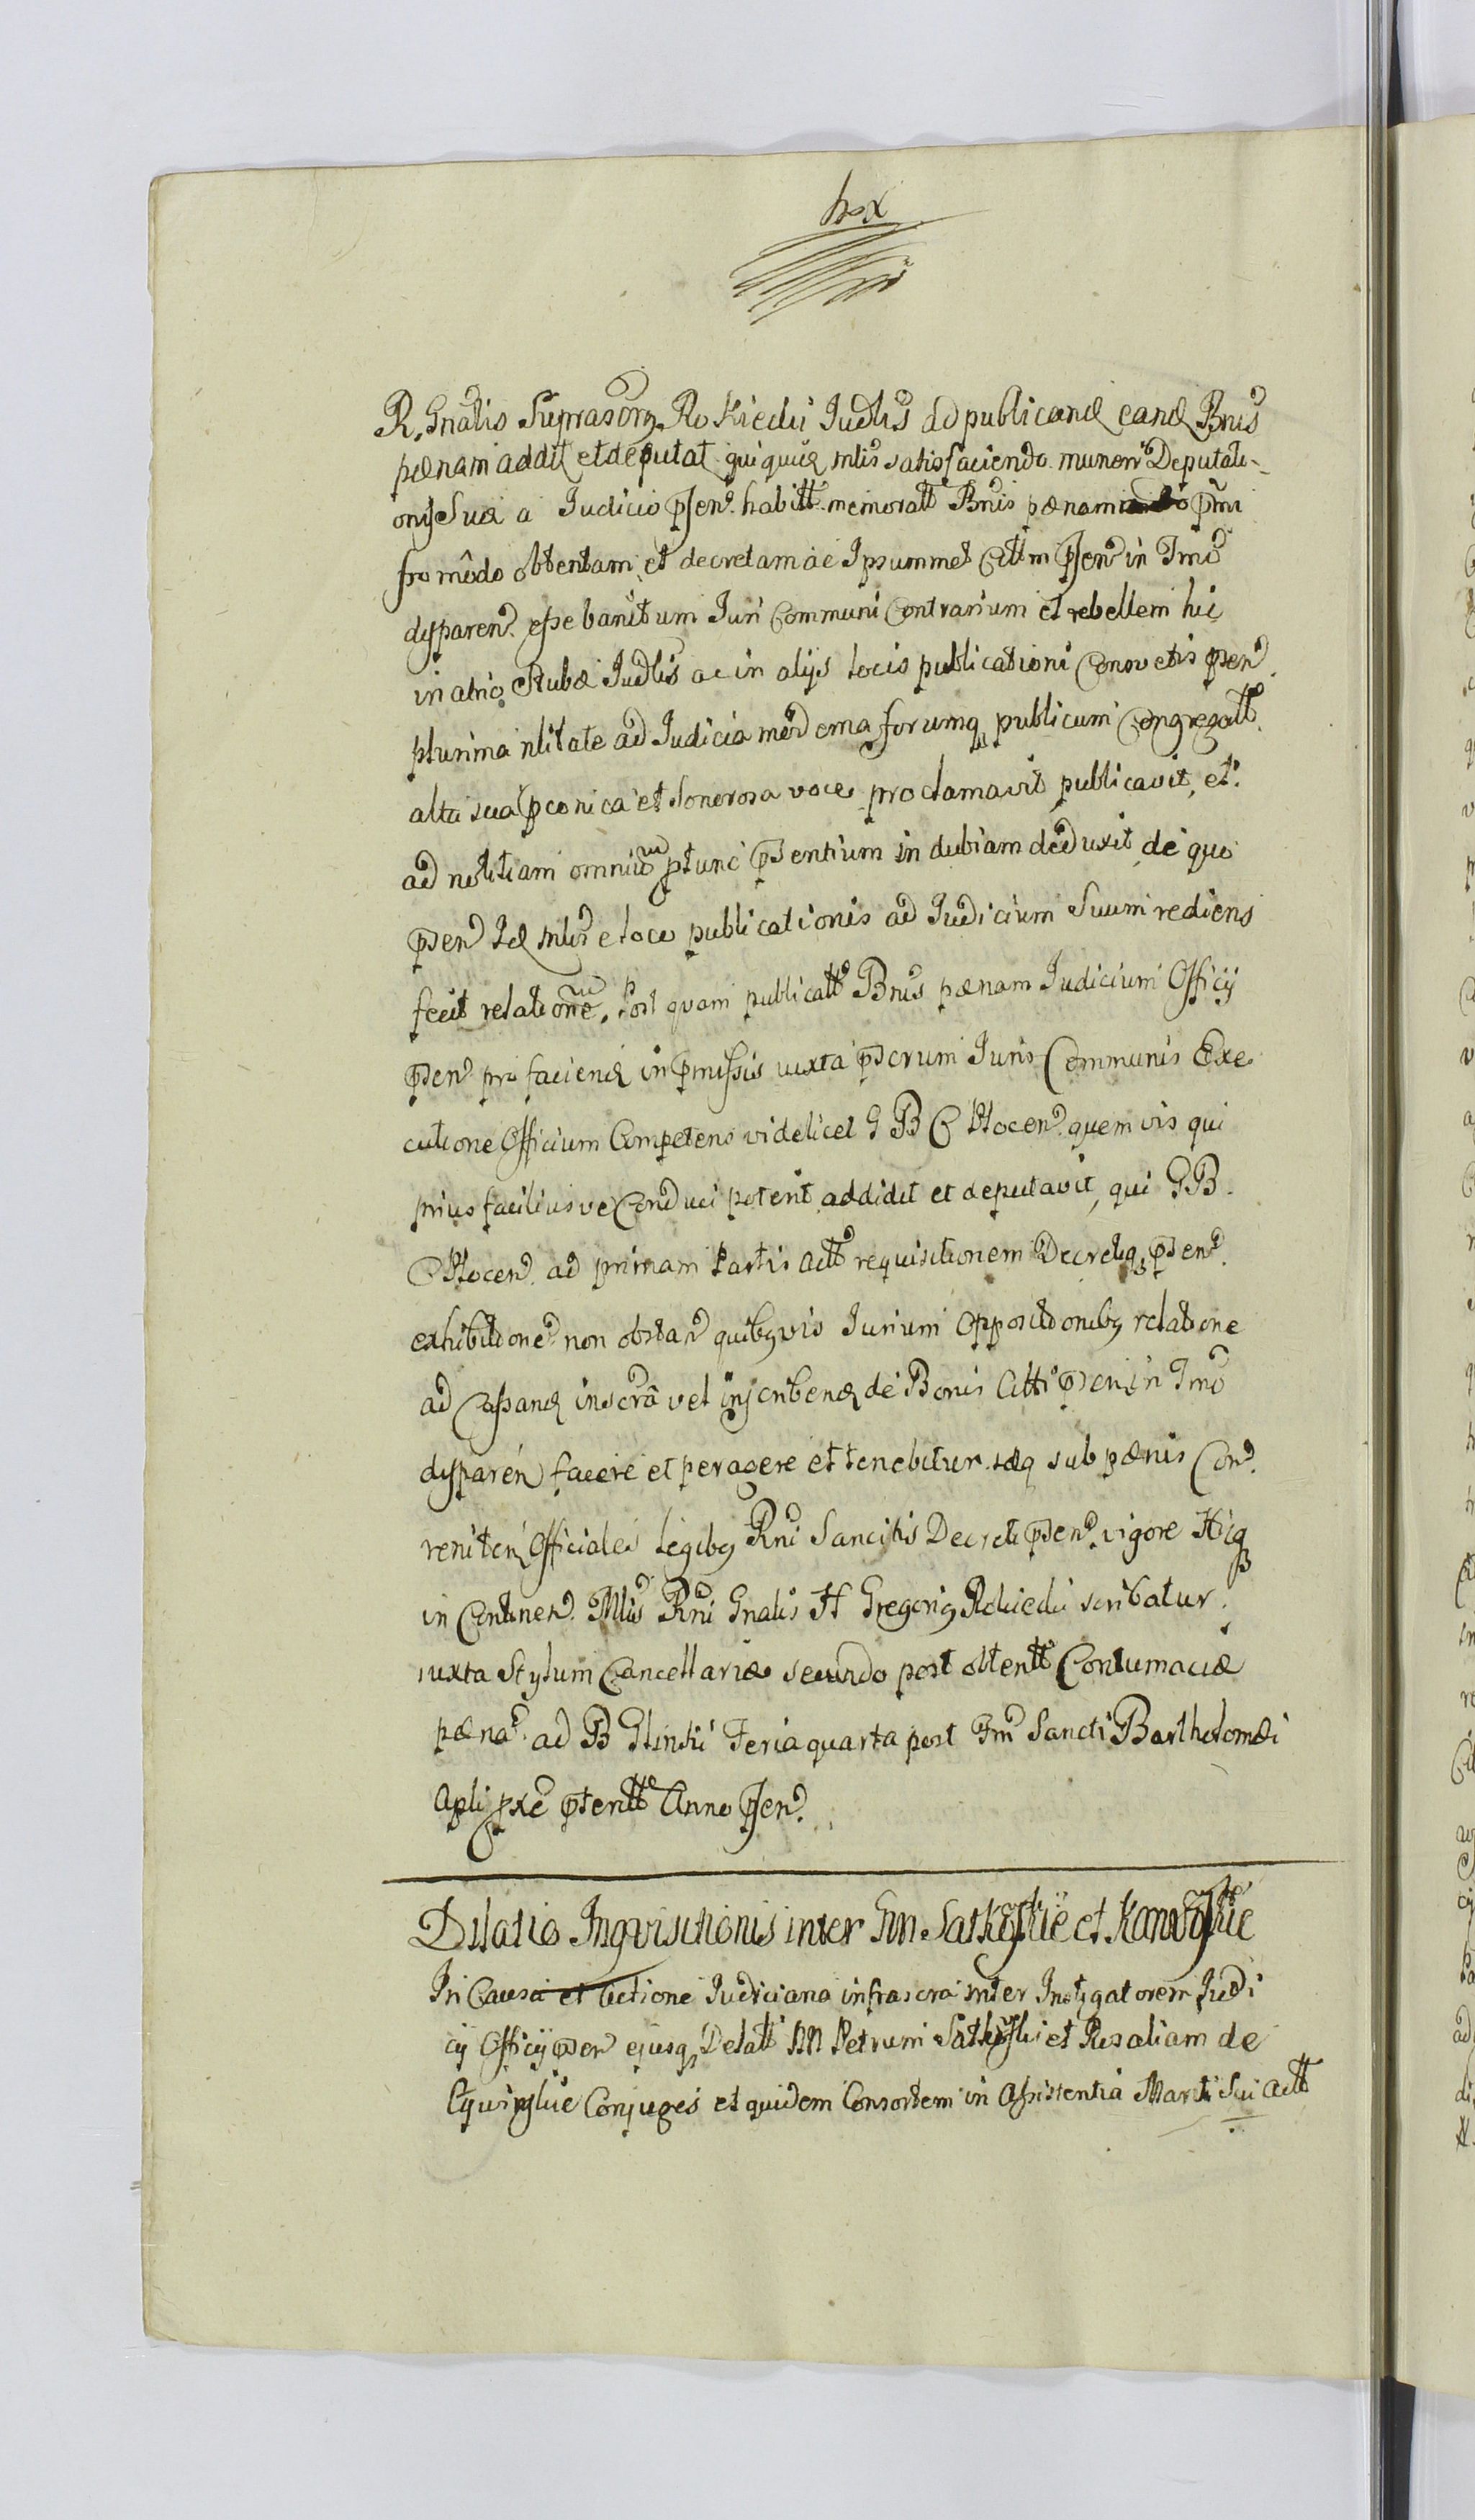 R. Gnalis Suprascrip. Rokicki Judlis ad publicand eand Bnis
pænam addit et deputat qui quid mlis satisfaciendo muneri Deputati-
onis Suæ a Judicio psen. habitt. memoratt Bnis pænam pmi
fro modo obtentam et decretam ac Ipsummet Cttm psen in Tmo
dyparen. esse banitum Juri Communi Contrarium et rebellem hic
in atrio Stubæ Judlis ac in alijs locis publicationi Consvetis psen
plurima nlitate ad Judicia medema forumq publicum Congregatt.
alta sua pconica et sonorosa voce proclamavit publicavit, et
ad notitiam omnium ptunc psentium indubiam deduxit de quo
psen Id mlis e loco publicationis ad Judicium Suum rediens
fecit relationem, Post quam publicatt Bnis pænam Judicium Officij
psen pro faciend in pmissis iuxta pscrum Juris Communis Exe
cutione Officium Competens videlicet G B C Plocen. quem vis qui
prius faciliusve Conduci poterit addidit et deputavit, qui G B.
C Plocen. ad primam Partis Actt requisitionem Decretiq psen
exhibitione non obstan quibusvis Jurium Oppositionibus relatione
ad Cassand inscra vel inscribend de Bonis Citti psen in Tmo
dyparen facere et peragere et tenebitur idq sub pænis Con
reniten Officiales Legibus Rni Sancitis Decreti psen. vigore Hicq
in Continen. Mlis Rni Gnalis H Gregorius Rokicki scribatur.
iuxta Stylum Cancellariæ secundo post obtentt Contumaciæ
pæna ad B Glinski Feria quarta post Fm Sancti Bartholomæi
Apli pxe pteritt Anno psen.
Dilatio Inqvisitionis inter Gn. Satkowskie et Karwowskie
In Causa et Actione Judiciaria infrascra inter Instigatorem Judi
cij Officij psen ejusq Delatt NN Petrum Satkowski et Rosaliam de
Conjuges et quidem Consortem in Assistentia Mariti Sui Actt